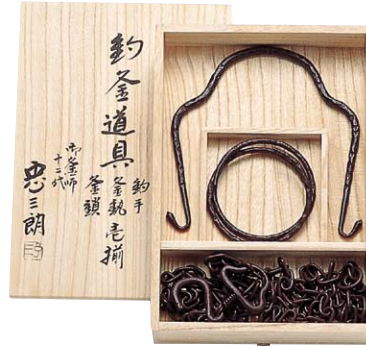 釣釜道具
釣手
釜釻壱揃
釜鎖
御釜師
十二代
忠三朗